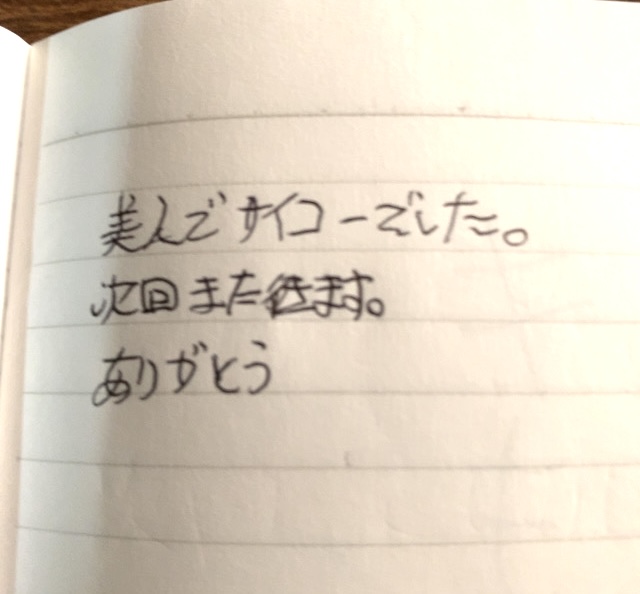 美人でサイコーでした。
次回また行きます。
ありがとう